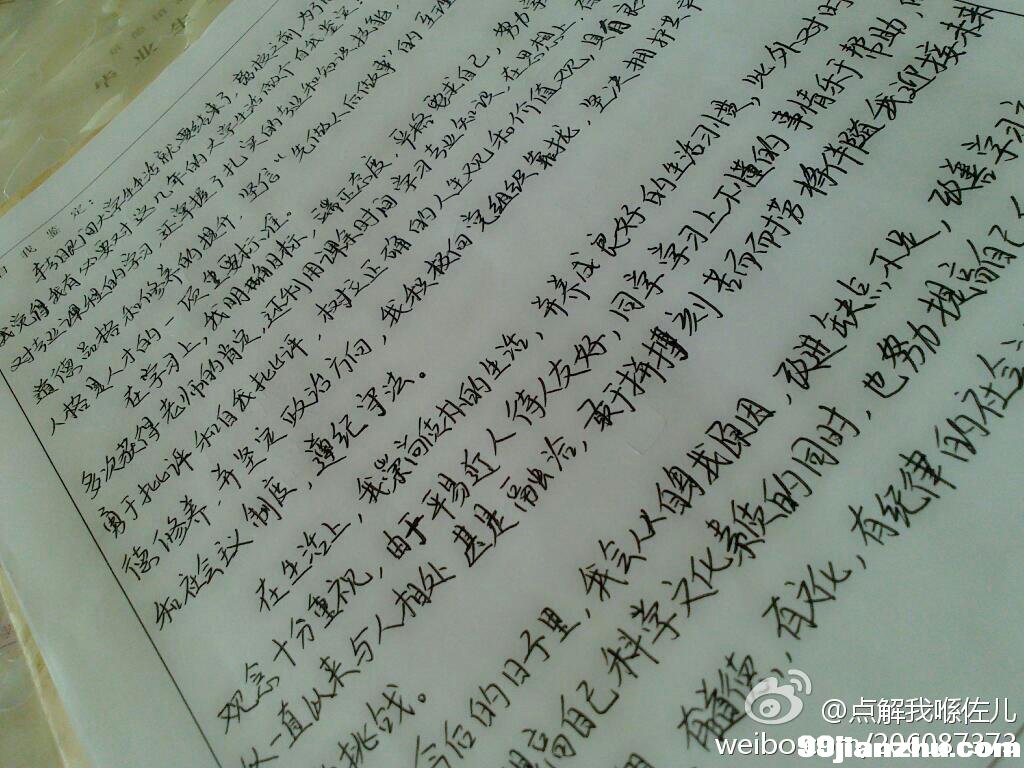 自我鉴定：
转眼间大学生生活就要结束了，离校之前，为了
我觉得我有必要对这几年的大学生活做个自我鉴定：
对专业课程的学习，还掌握了扎实的专业和知识技能，
道德品格和修养的提升，坚信“先做人后做事”的至理
人格是人才的一项重要标准。
在学习上，我明确目标，端正态度，严格要求自己，努力学
多次获得老师的肯定，还利用课余时间学习专业知识，在思想上，
勇于批评和自我批评，树立正确的人生观和价值观，具有良
德修养，并坚定政治方向，我积极向党组织靠拢，坚决拥护共
和社会议制度，遵纪守法。
在生活上，我崇尚质朴的生活，并养成良好的生活习惯，此外对时
观念十分重视，由于平易近人待人友好，同学学习上不懂的事情乐于帮助，
以一直以来与人相处甚是融洽，敢于拼搏刻苦而耐劳将伴随我迎接未
挑战。
今后的日子里，我会从自身找原因，改进缺点，不足，改善学习
提高自己科学文化素质的同时，也努力提高自己
有道德，有文化，有纪律的社会
@点解我喺佐儿
weibo.com/206087373
99jianzhu.com